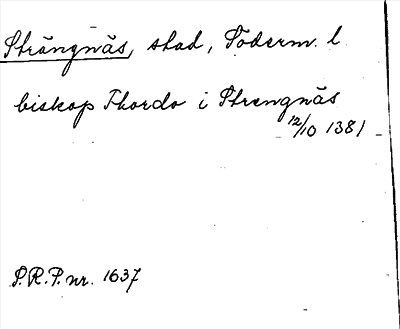 Strängnäs, stad, Söderm. l
biskop Thordo i Strengnäs
12/10 1381
S.R.P. nr. 1637